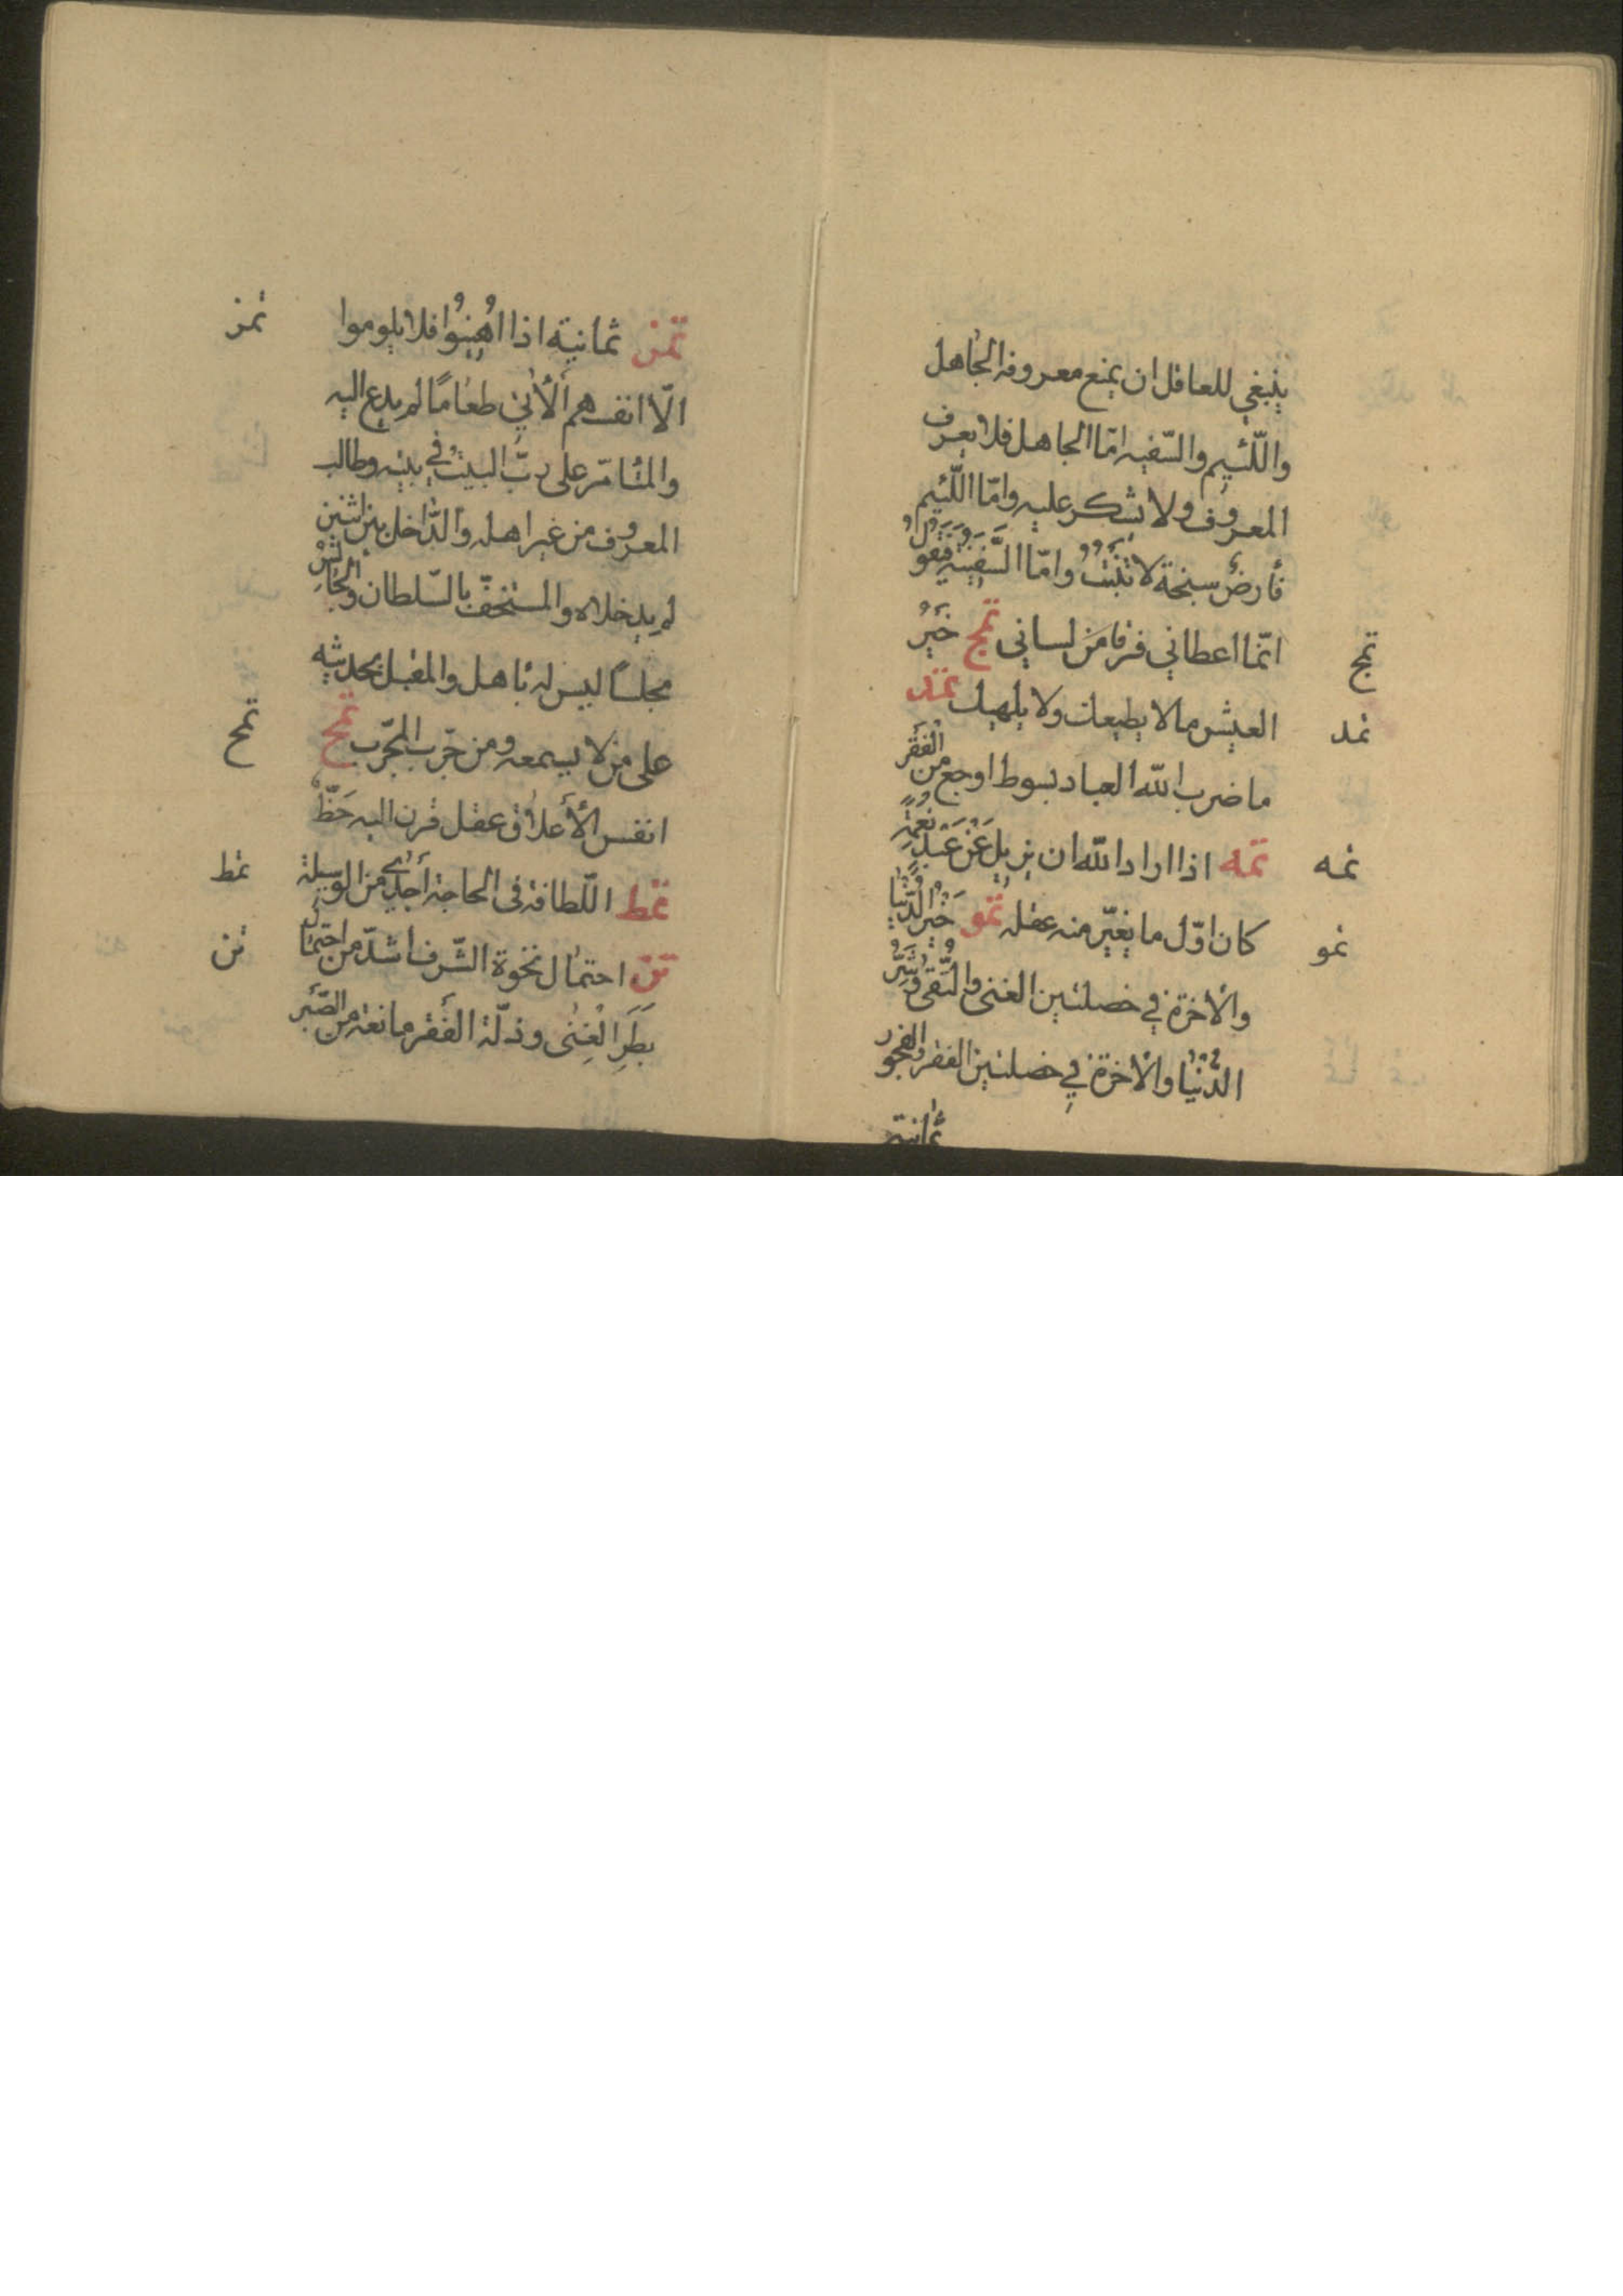 ينبغي للعاقل ان يمنع معروفه الجاهل
واللّئيم والسّفيه امّا الجاهل فلا يعرف
المعروف ولا يشكر عليه وامّا اللّئيم
فأرض سبخة لا تنبت وامّا السّفيه فيقول
تمج
انّما اعطاني فرقا من لساني تمج خير
تمد
العيش ما لا يطيعك ولا يلهيك تمد
ما ضرب الله العباد بسوط اوجع من الفقر
تمه
تمه اذا اراد الله ان يزيل عن عبد نعمة
تمو
كان اوّل ما يغيّر منه عقله تمو خير الدّنيا
والاخرة في خصلتين الغنى والتّقى وشرّ
الدّنيا والاخرة في خصلتين الفقر والفجور
ثمانية
تمز
تمز ثمانية اذا اهينوا فلا يلوموا
الّا انفسهم الأتي طعاما لم يدع اليه
والمتأمّر على ربّ البيت في بيته وطالب
المعروف من غير اهله والدّاخل بين اثنين
لم يدخلاه والمستخفّ بالسّلطان والجالس
مجلسا ليس له باهل والمقبل بحديثه
تمح
على من لا يسمعه ومن جرّب المجرّب تمح
انفس الأعلاق عقل قرن اليه حظّ
تمط
تمط اللّطافة في الحاجة أجدى من الوسيلة
تن
تن احتمال نخوة الشّرف اشدّ من احتمال
بطر الغنى وذلّة الفقر مانعة من الصّبر